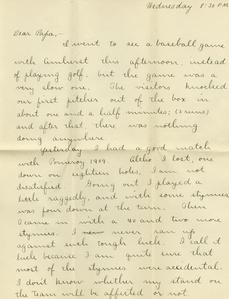 Wednesday 8:30 P.M.
Dear Papa,-
I went to see a baseball game
with Amherst this afternoon, instead
of playing golf, but the game was a
very slow one. The visitors knocked
our first pitcher out of the box in
about one and a half minutes; (3 runs)
and after that, there was nothing
doing anywhere.
Yesterday I had a good match
with Pomeroy 1909. Altho I lost, one
down on eighteen holes, I am not
disatisfied. Going out I played a
little raggedly, and with some stymies
was four down at the turn. Then
I came in with a 40 and two more
stymies. I never ran up
against such tough luck. I call it
luck because I am quite sure that
most of the stymies were accidental.
I don't know whether my stand on
the team will be affected or not.